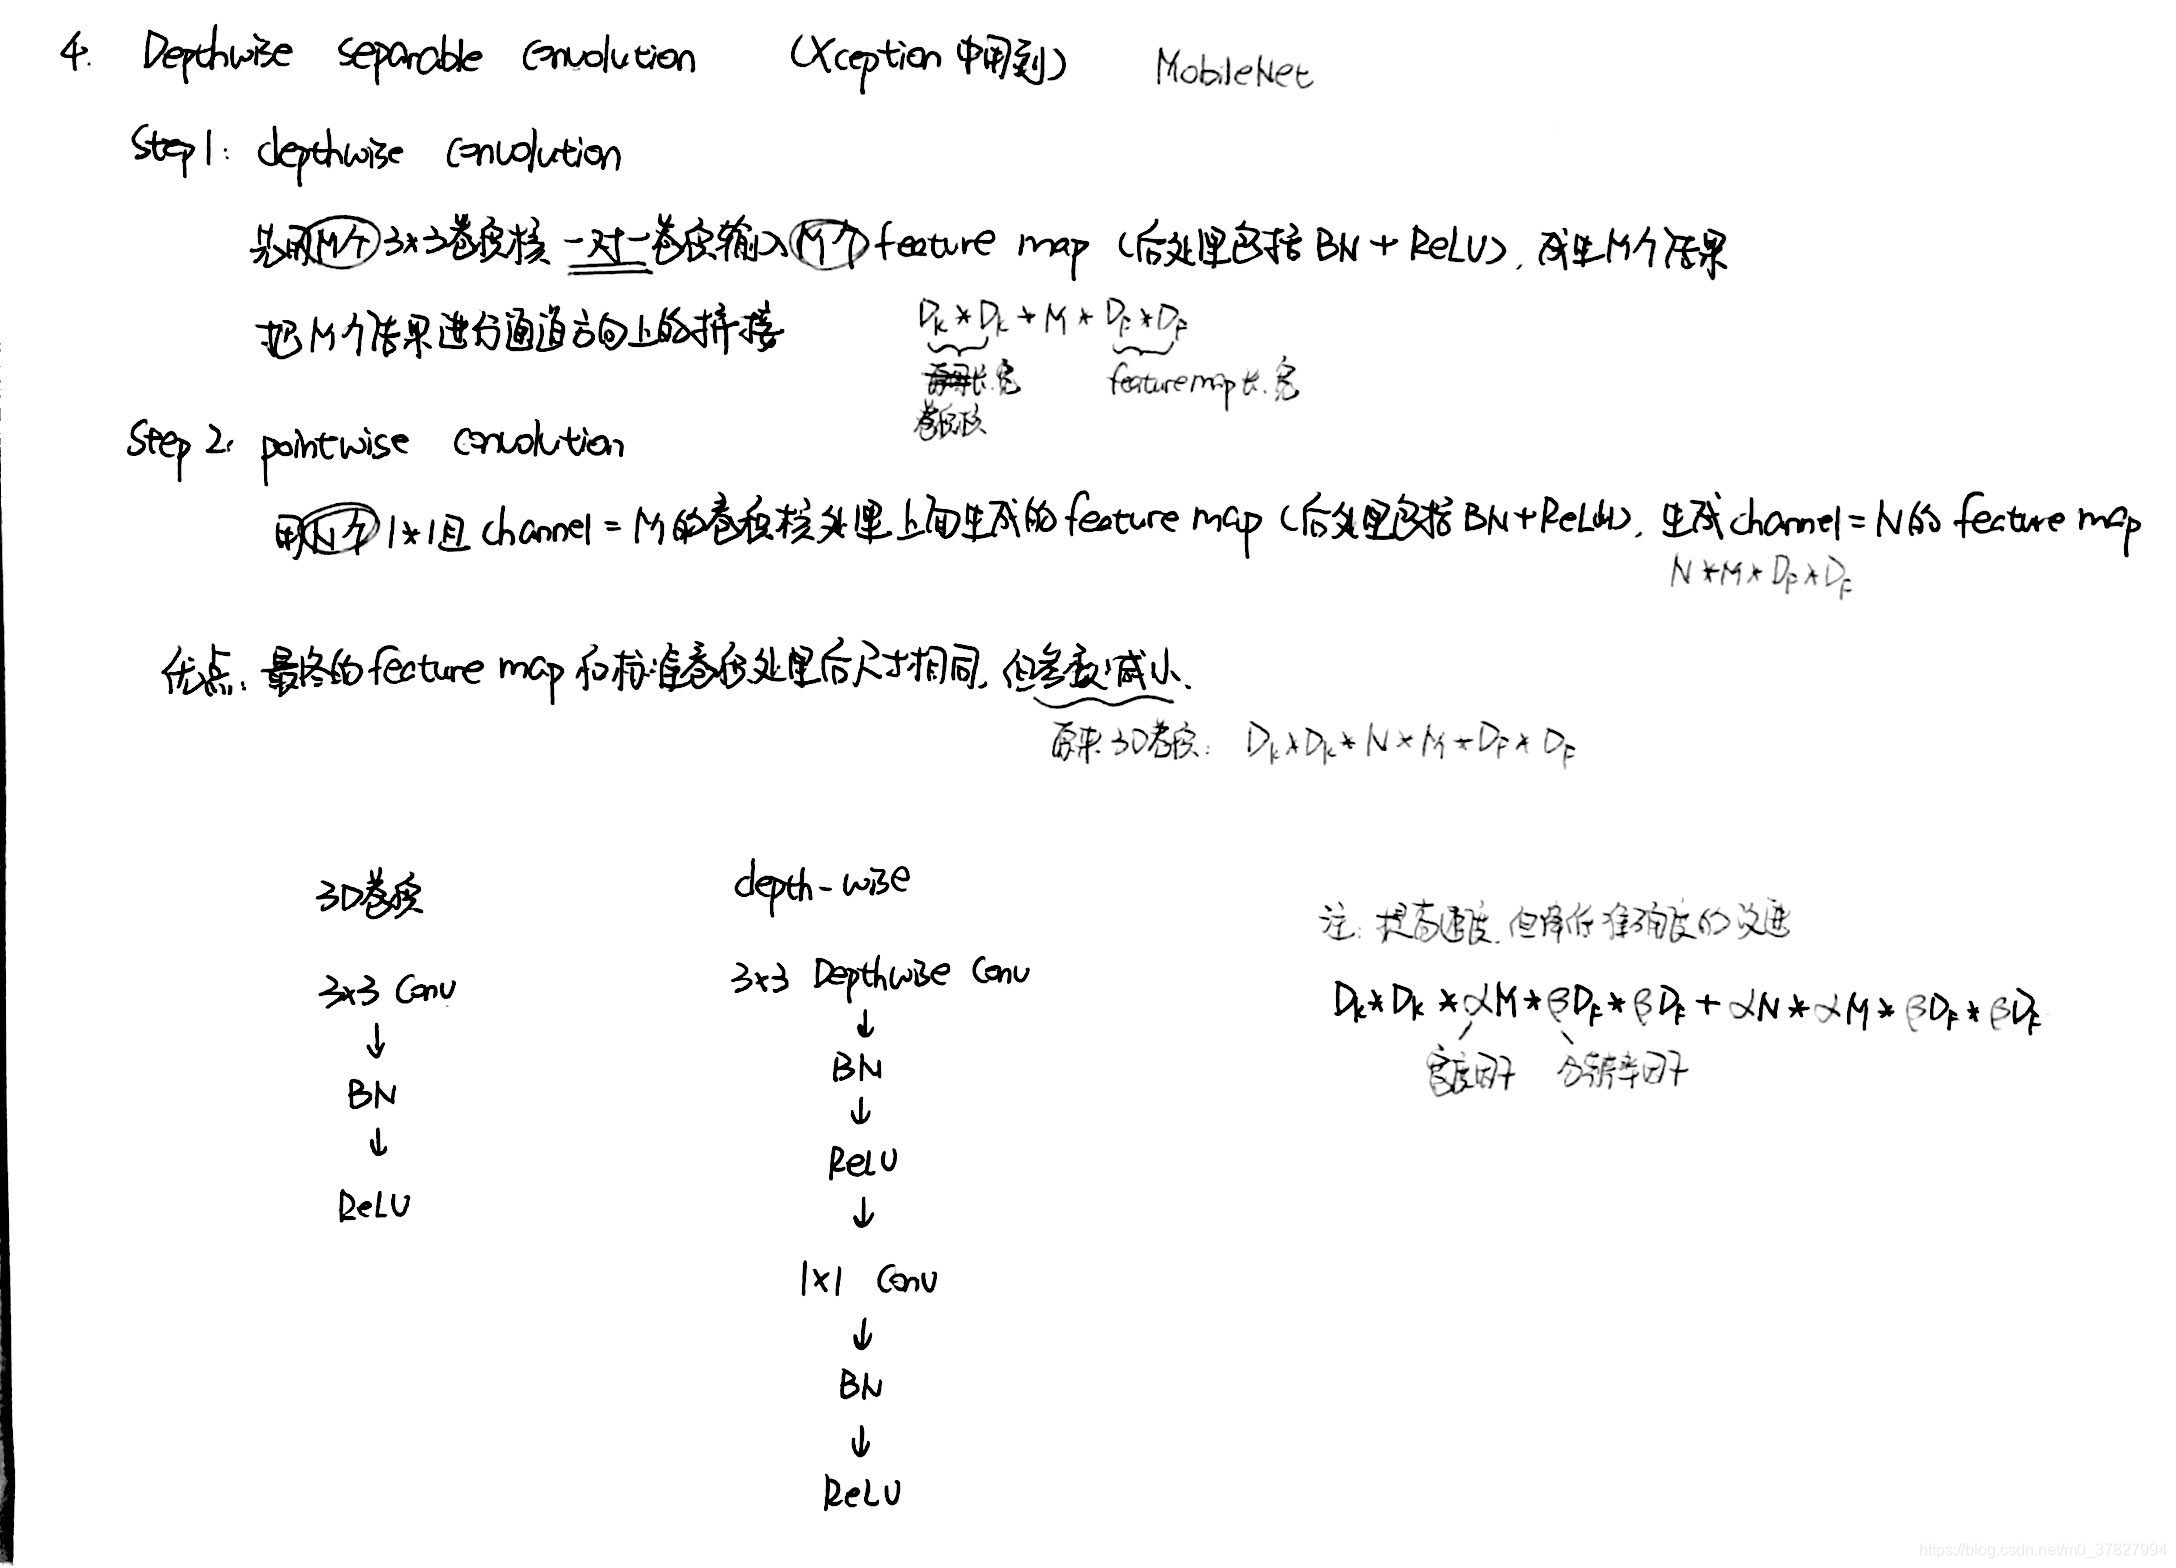 4. Depthwise separable convolution (Xception中用到) MobileNet
Step1: depthwise convolution
先用M个 3*3卷积核 一对一卷积输入M个 feature map (后处理包括BN+ReLU), 成生M个结果
把M个结果进行通道方向上的拼接
Dk*Dk*M*DF*DF
长.宽
卷积核
feature map 长.宽
Step 2: pointwise convolution
用N个 1*1且 channel=M的卷积核处理上面生成的feature map (后处理包括BN+ReLU), 生成channel=N的feature map
N*M*DF*DF
优点: 最终的feature map和标准卷积处理后尺寸相同, 但参数减小.
原来3D卷积: Dk*Dk*N*M*DF*DF
3D卷积
3x3 Conv
↓
BN
↓
ReLU
depth-wise
3x3 Depthwise Conv
↓
BN
↓
ReLU
↓
1x1 Conv
↓
BN
↓
ReLU
注: 提高速度, 但降低准确度的改进
Dk*Dk*αM*βDF*βDF+αN*αM*βDF*βDF
宽度因子 分辨率因子
https://blog.csdn.net/m0_37827994